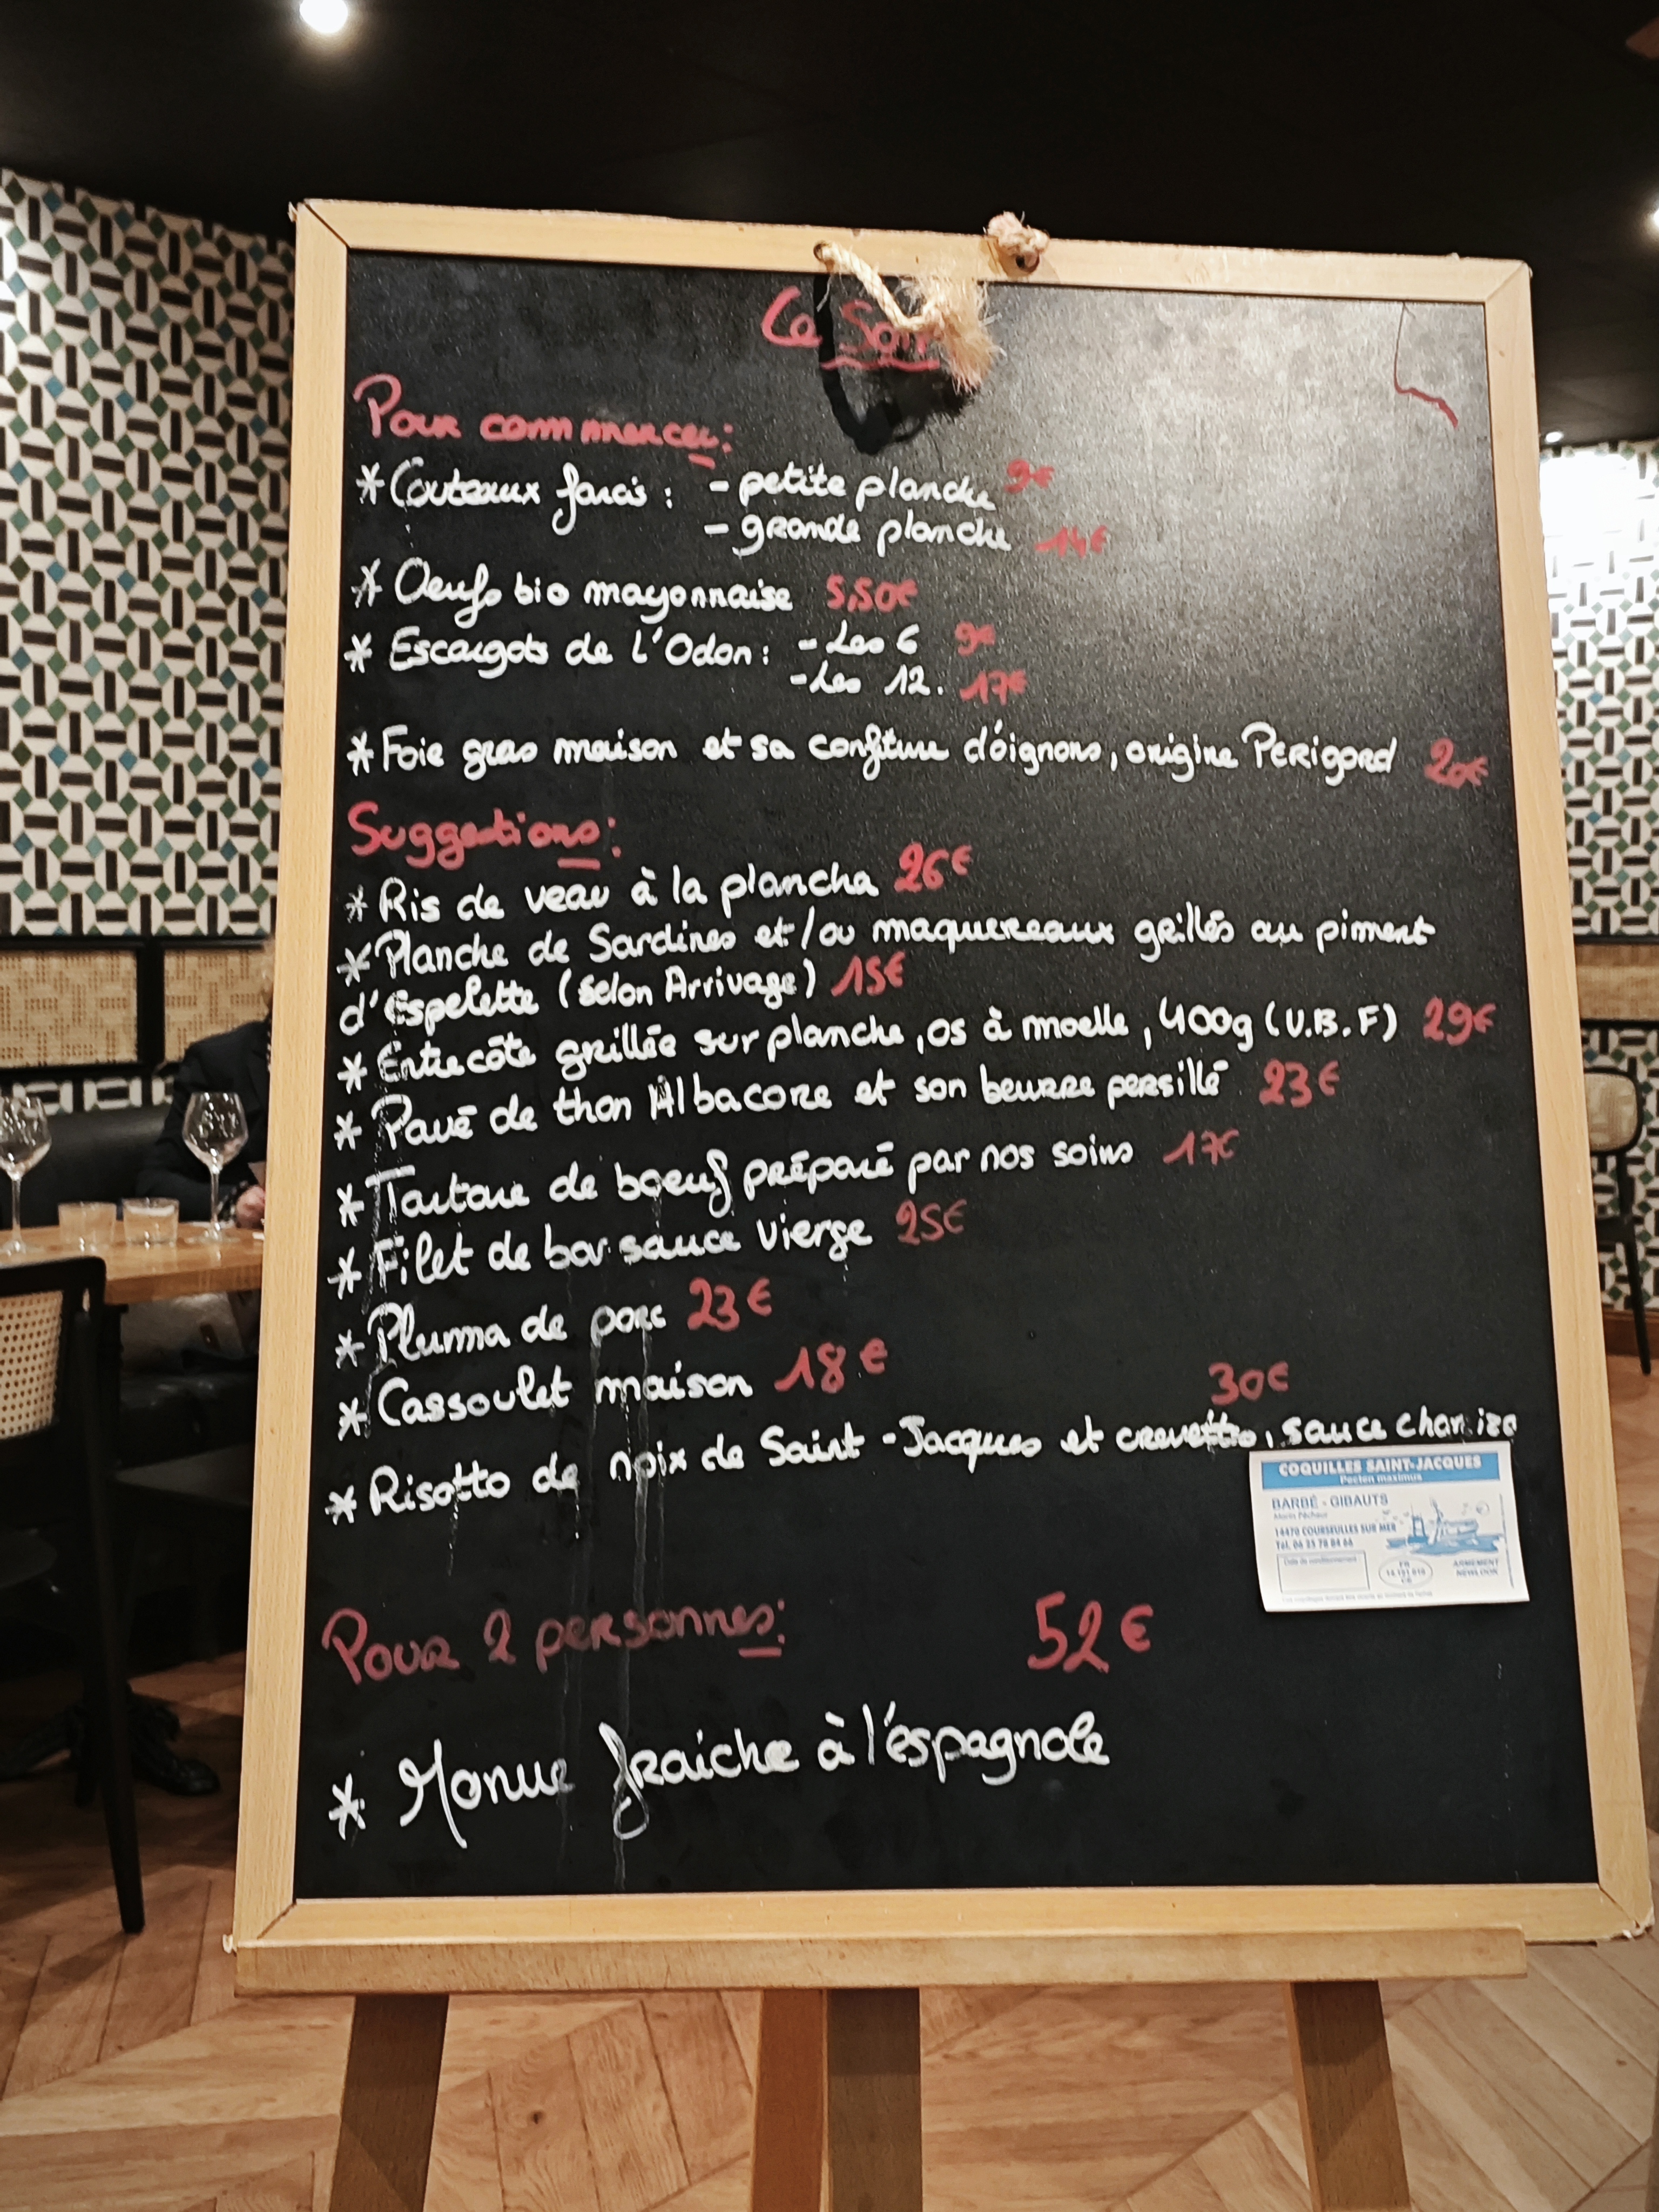 Ce Soir
Pour commencer:
* Couteaux farcis : - petite planche 9€
- grande planche 14€
* Oeufs bio mayonnaise 5,50€
* Escargots de l'Odon : - Les 6 9€
- Les 12. 17€
* Foie gras maison et sa confiture d'oignons, origine PERigord 20€
Suggestions:
* Ris de veau à la plancha 26€
* Planche de Sardines et/ou maquereaux grillés au piment
d'Espelette (selon Arrivage) 15€
* Entrecôte grillée sur planche, os à moelle, 400g (V.B.F) 29€
* Pavé de thon Albacore et son beurre persillé 23€
* Tartare de boeuf préparé par nos soins 17€
* Filet de bar sauce vierge 25€
* Pluma de porc 23€
* Cassoulet maison 18€
30€
* Risotto de noix de Saint-Jacques et crevettes, sauce chorizo
COQUILLES SAINT-JACQUES
Pecten maximus
BARBÉ - GIBAUTS
Marin Pêcheur
14470 COURSEULLES SUR MER
Tél. 06 25 78 84 66
Date de conditionnement :
FR
14.191.010
CE
ARMEMENT
NEWLOOK
Pour 2 personnes: 52€
* Morue fraiche à l'éspagnole